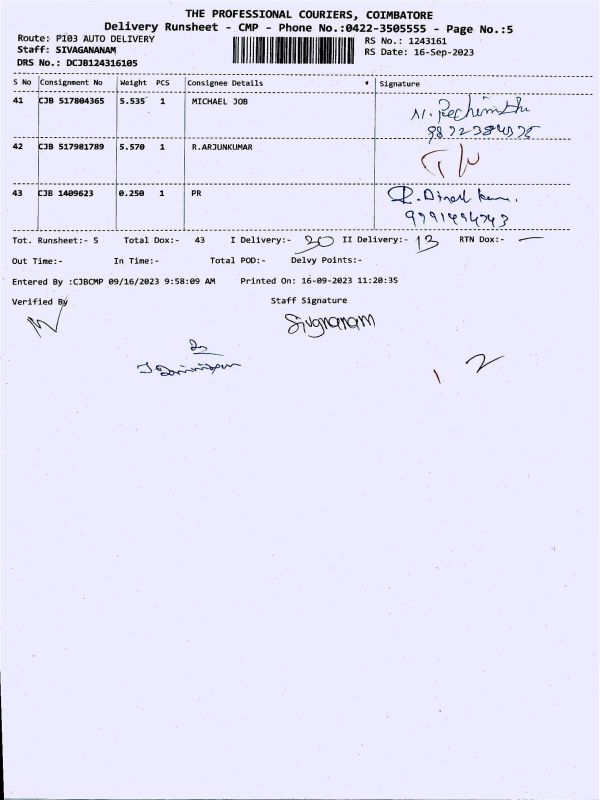 THE PROFESSIONAL COURIERS, COIMBATORE
Delivery Runsheet - CMP - Phone No.:0422-3505555 - Page No.:5
Route: P103 AUTO DELIVERY RS No.: 1243161
Staff: SIVAGANANAM RS Date: 16-Sep-2023
DRS No.: DCJB124316105
S No Consignment No Weight PCS Consignee Details Signature
41 CJB 517804365 5.535 1 MICHAEL JOB
42 CJB 517981789 5.570 1 R.ARJUNKUMAR
43 CJB 1409623 0.250 1 PR
Tot. Runsheet:- 5 Total Dox:- 43 I Delivery:- 30 II Delivery:- 13 RTN Dox:- —
Out Time:- In Time:- Total POD:- Delvy Points:-
Entered By :CJBCMP 09/16/2023 9:58:09 AM Printed On: 16-09-2023 11:20:35
Verified By Staff Signature
Sivgnanam
1 2